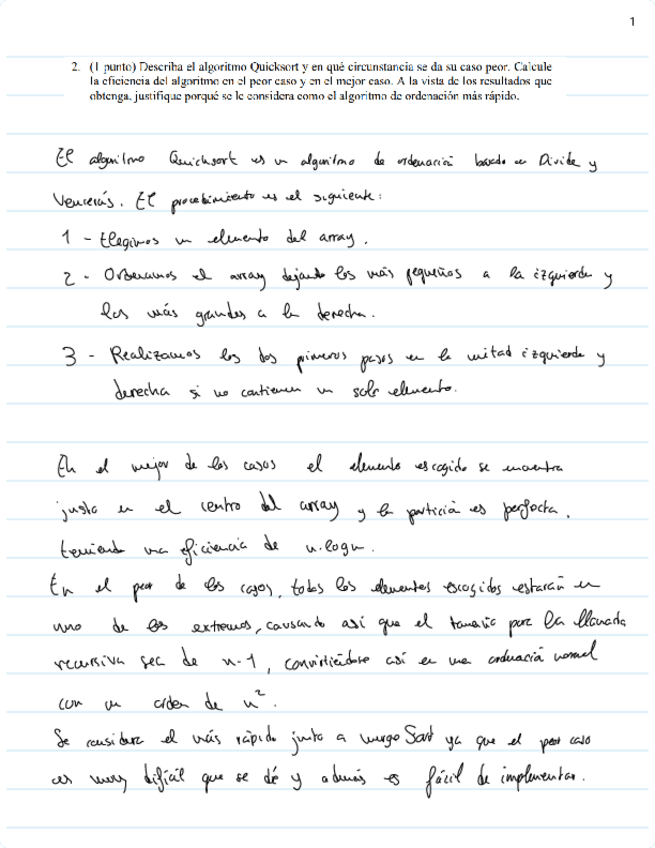 1
2. (1 punto) Describa el algoritmo Quicksort y en qué circunstancia se da su caso peor. Calcule
la eficiencia del algoritmo en el peor caso y en el mejor caso. A la vista de los resultados que
obtenga, justifique porqué se le considera como el algoritmo de ordenación más rápido.
El algoritmo Quicksort es un algoritmo de ordenación basado en Divide y
Vencerás. El procedimiento es el siguiente:
1 - Elegimos un elemento del array.
2 - Ordenamos el array dejando los más pequeños a la izquierda y
los más grandes a la derecha.
3 - Realizamos los dos primeros pasos en la mitad izquierda y
derecha si no contienen un solo elemento.
En el mejor de los casos el elemento escogido se encuentra
justo en el centro del array y la partición es perfecta,
teniendo una eficiencia de n·logn.
En el peor de los casos, todos los elementos escogidos estarán en
uno de los extremos, causando así que el tamaño para la llamada
recursiva sea de n-1, convirtiéndose así en una ordenación normal
con un orden de n².
Se considera el más rápido junto a mergeSort ya que el peor caso
es muy difícil que se dé y además es fácil de implementar.